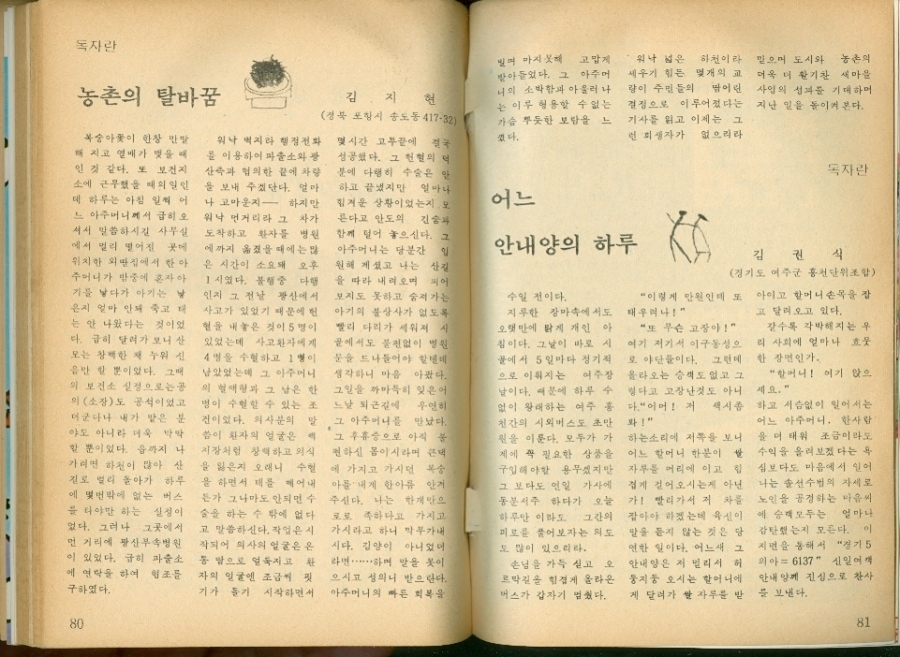 독자란
농촌의 탈바꿈
김 지 현
(경북 포항시 송도동 417·32)
복숭아꽃이 한창 만발
해 지고 열매가 맺을 때
인 것 같다. 또 보건지
소에 근무했을 때의 일인
데 하루는 아침 일찍 어
느 아주머니께서 급히 오
셔서 말씀하시길 사무실
에서 멀리 떨어진 곳에
위치한 외딴집에서 한 아
주머니가 밤중에 혼자 아
기를 낳다가 아기는 낳
은지 얼마 안돼 죽고 태
는 안 나왔다는 것이었
다. 급히 달려가 보니 산
모는 창백한 채 누워 신
음만 할 뿐이었다. 그때
의 보건소 실정으로는 공
의(소장)도 공석이었고
더군다나 내가 맡은 분
야도 아니라 더욱 막막
할 뿐이었다. 읍까지 나
가려면 하천이 많아 산
길로 멀리 돌아가 하루
에 몇번밖에 없는 버스
를 타야만 하는 실정이
었다. 그러나 그곳에서
먼 거리에 광산부속병원
이 있었다. 급히 파출소
에 연락을 하여 협조를
구하였다.
워낙 벽지라 행정전화
를 이용하여 파출소와 광
산측과 협의한 끝에 차량
을 보내 주겠단다. 얼마
나 고마운지── 하지만
워낙 먼거리라 그 차가
도착하고 환자를 병원
에까지 옮겼을 때에는 많
은 시간이 소요돼 오후
1시였다. 불행중 다행
인지 그 전날 광산에서
사고가 있었기 때문에 헌
혈을 내놓은 것이 5병이
있었는데 사고환자에게
4병을 수혈하고 1병이
남았었는데 그 아주머니
의 혈액형과 그 남은 한
병이 수혈할 수 있는 조
건이었다. 의사분의 말
씀이 환자의 얼굴은 백
지장처럼 창백하고 의식
을 잃은지 오래니 수혈
을 하면서 태를 떼어내
든가 그나마도 안되면 수
술을 하는 수 밖에 없다
고 말씀하신다. 작업은 시
작되어 의사의 얼굴은 온
통 땀으로 얼룩지고 환
자의 얼굴엔 조금씩 핏
기가 돌기 시작하면서
몇시간 고투끝에 결국
성공했다. 그 헌혈의 덕
분에 다행히 수술은 안
하고 끝냈지만 얼마나
힘겨운 상황이었는지 모
른다고 안도의 긴숨과
함께 털어 놓으신다. 그
아주머니는 당분간 입
원해 계셨고 나는 산길
을 따라 내려오며 피어
보지도 못하고 숨져가는
아기의 불상사가 없도록
빨리 다리가 세워져 시
골에서도 불편없이 병원
문을 드나들어야 할텐데
생각하니 마음 아팠다.
그일을 까마득히 잊은 어
느날 퇴근길에 우연히
그 아주머니를 만났다.
그 후유증으로 아직 불
편하신 몸이시라며 큰댁
에 가지고 가시던 복숭
아를 내게 한아름 안겨
주신다. 나는 한개만으
로도 족하다고 가지고
가시라고 하니 막무가내
시다. 김양이 아니었더
라면……하며 말을 못이
으시고 성의니 받으란다.
아주머니의 빠른 회복을
80
빌며 마지못해 고맙게
받아들었다. 그 아주머
니의 소박함과 아울러 나
는 이루 형용할 수 없는
가슴 뿌듯한 보람을 느
꼈다.
워낙 넓은 하천이라
세우기 힘든 몇개의 교
량이 주민들의 땀어린
결정으로 이루어졌다는
기사를 읽고 이제는 그
런 희생자가 없으리라
믿으며 도시와 농촌의
더욱 더 활기찬 새마을
사업의 성과를 기대하며
지난 일을 돌이켜 본다.
독자란
어느
안내양의 하루
김 권 식
(경기도 여주군 흥천단위조합)
수일 전이다.
지루한 장마속에서도
오랫만에 맑게 개인 아
침이다. 그날이 바로 시
골에서 5일마다 정기적
으로 이뤄지는 여주장
날이다. 때문에 하루 수
없이 왕래하는 여주 흥
천간의 시외버스도 초만
원을 이룬다. 모두가 가
계에 꼭 필요한 상품을
구입해야할 용무겠지만
그 보다도 연일 가사에
동분서주 하다가 오늘
하루만이라도 그간의
피로를 풀어보자는 의도
도 많이 있으리라.
손님을 가득 싣고 오
르막길을 힘겹게 올라온
버스가 갑자기 멈췄다.
“이렇게 만원인데 또
태우려나!”
“또 무슨 고장야!”
여기 저기서 이구동성으
로 야단들이다. 그런데
올라오는 승객도 없고 그
렇다고 고장난것도 아니
다.“어머! 저 색시좀
봐!”
하는소리에 저쪽을 보니
어느 할머니 한분이 쌀
자루를 머리에 이고 힘
겹게 걸어오시는게 아닌
가! 빨리가서 저 차를
잡아야 하겠는데 육신이
말을 듣지 않는 것은 당
연한 일이다. 어느새 그
안내양은 저 멀리서 허
둥지둥 오시는 할머니에
게 달려가 쌀 자루를 받
아이고 할머니 손목을 잡
고 달려오고 있다.
갈수록 각박해지는 우
리 사회에 얼마나 흐뭇
한 장면인가.
“할머니! 여기 앉으
세요.”
하고 서슴없이 일어서는
어느 아주머니. 한사람
을 더 태워 조금이라도
수익을 올려보겠다는 욕
심보다도 마음에서 일어
나는 솔선수범의 자세로
노인을 공경하는 마음씨
에 승객모두는 얼마나
감탄했는지 모른다. 이
지면을 통해서 “경기 5
의아=6137” 신일여객
안내양께 진심으로 찬사
를 보낸다.
81